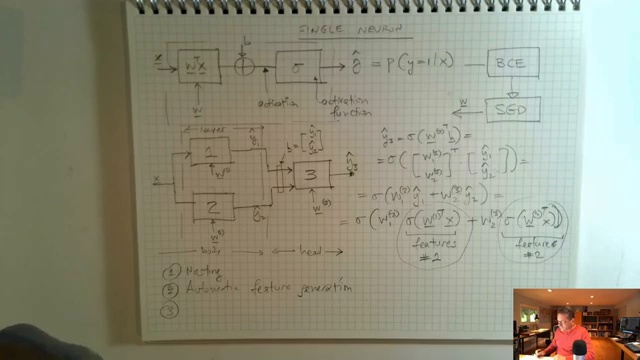 SINGLE NEURON
x
wᵀx
w
b
σ
ŷ = P(y=1|x)
BCE
SGD
w
activation
activation function
layer
x
1
w⁽¹⁾
ŷ₁
2
w⁽²⁾
ŷ₂
h = [ŷ₁ ŷ₂]
3
w⁽³⁾
ŷ₃
body
head
ŷ₃ = σ(w⁽³⁾ᵀ h) =
= σ([w₁⁽³⁾ w₂⁽³⁾]ᵀ [ŷ₁ ŷ₂]) =
= σ(w₁⁽³⁾ ŷ₁ + w₂⁽³⁾ ŷ₂) =
= σ(w₁⁽³⁾ σ(w⁽¹⁾ᵀx) + w₂⁽³⁾ σ(w⁽²⁾ᵀx))
features #2
features #2
① Nesting
② Automatic feature generation
③